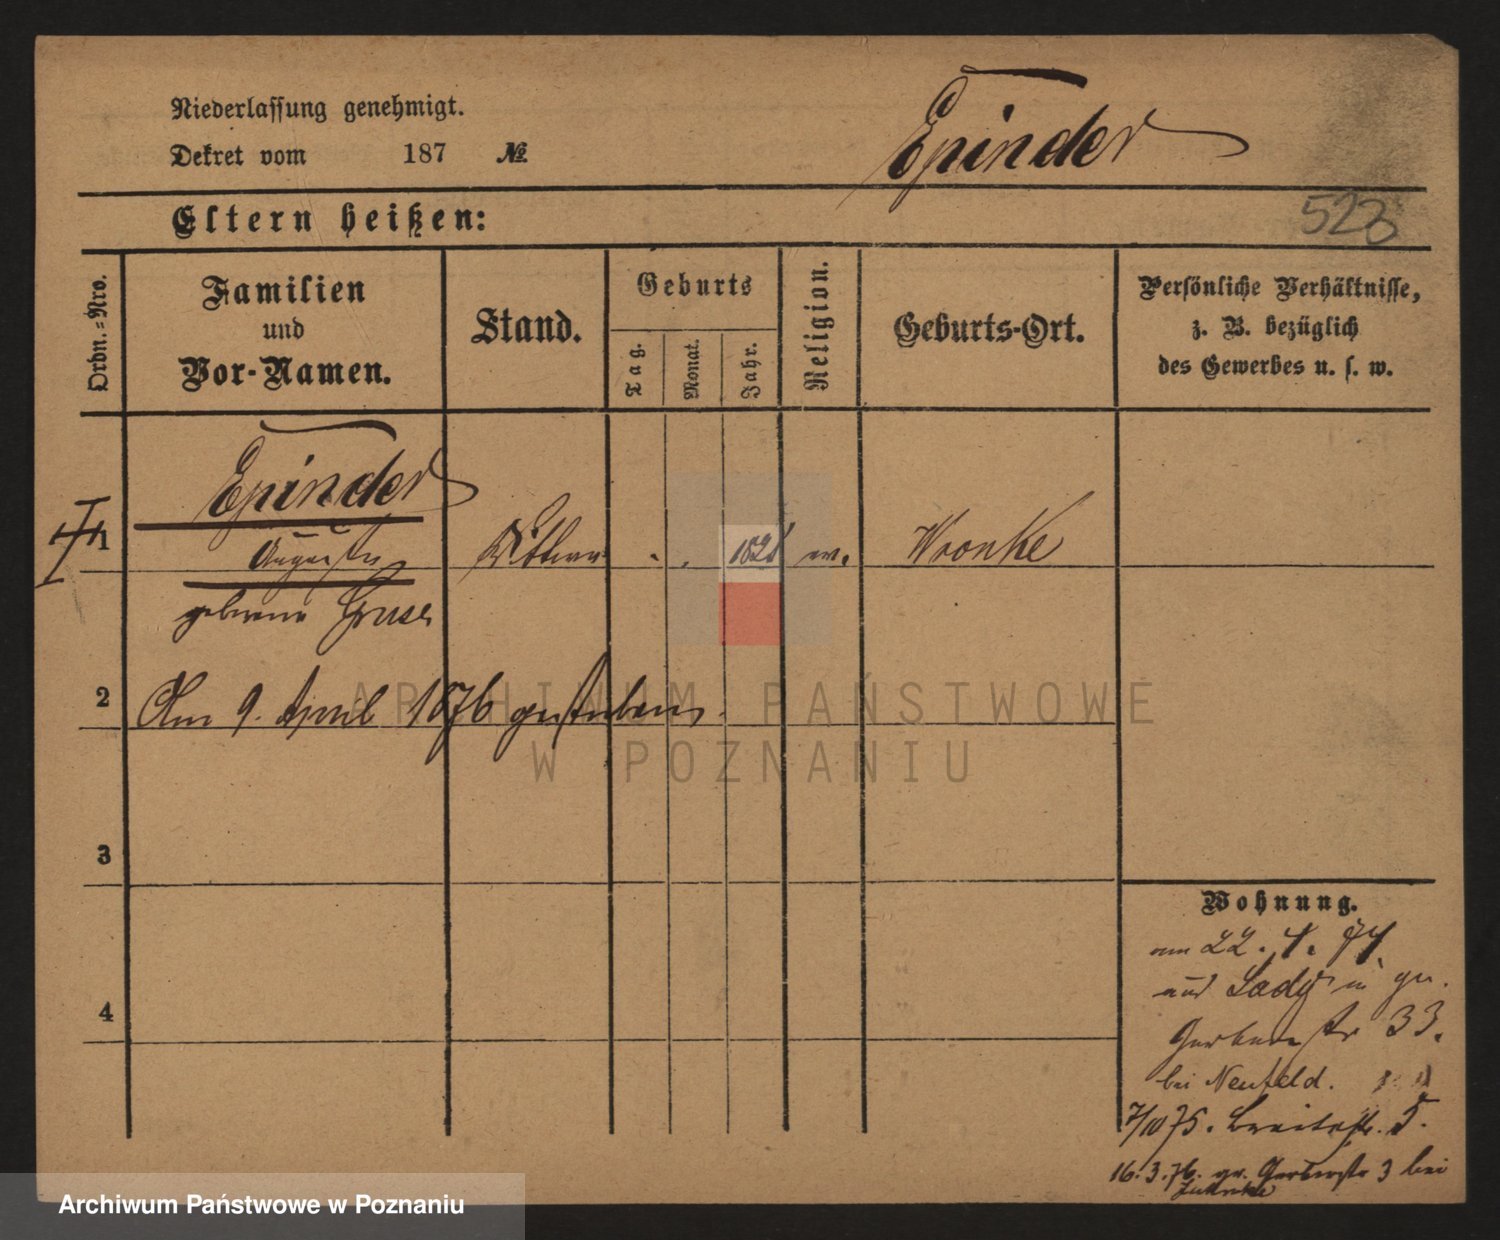 Niederlassung genehmigt.
Dekret vom 187 №
Epinder
523
Eltern heißen:
Ordn.=Nro.
Familien
und
Vor-Namen.
Stand.
Geburts
Tag.
Monat.
Jahr.
Religion.
Geburts-Ort.
Persönliche Verhältnisse,
z. B. bezüglich
des Gewerbes u. s. w.
Epinder
1 Auguste Wittwe 1821 ev. Wronke
geborene Gruse
2 Am 9. April 1876 gestorben.
3
4
Wohnung.
am 22. 4. 74
aus
Gerberstr 33.
bei Neufeld.
7/10 75. Breitestr. 5.
16.3.76. gr. Gerberstr 3 bei
ARCHIWUM PAŃSTWOWE
W POZNANIU
Archiwum Państwowe w Poznaniu